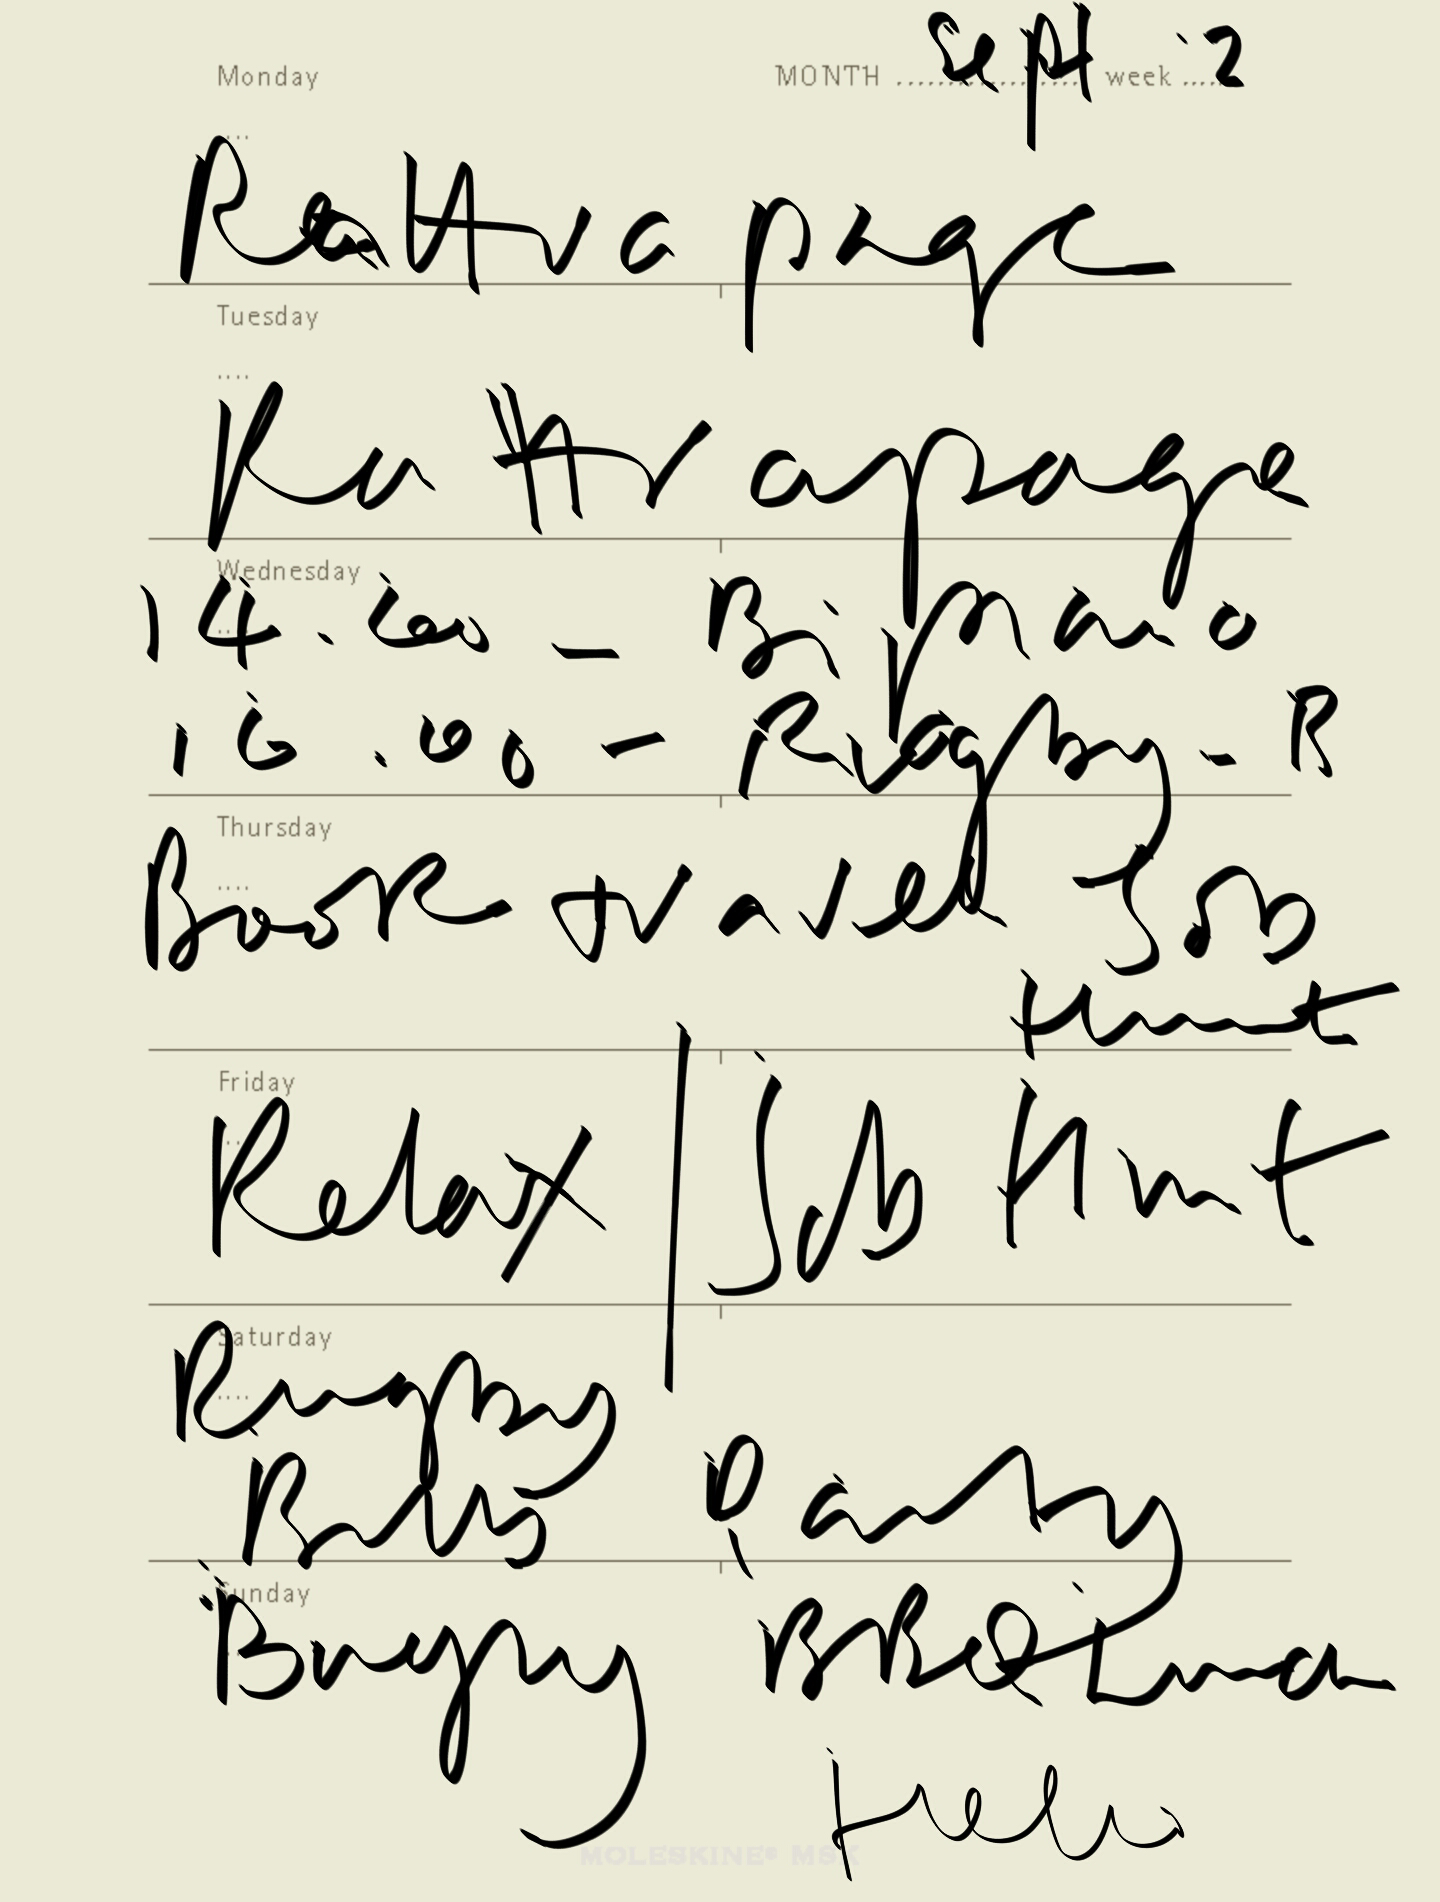 Monday
MONTH Sept week 2
Rattrapage
Tuesday
Rattrapage
Wednesday
14.00 -
16.00 - Rugby - B
Thursday
Book travel Job
Hunt
Friday
Relax | Job Hunt
Saturday
Rugby
Party
Sunday
BBQ Lunch
Hello
MOLESKINE® MSK